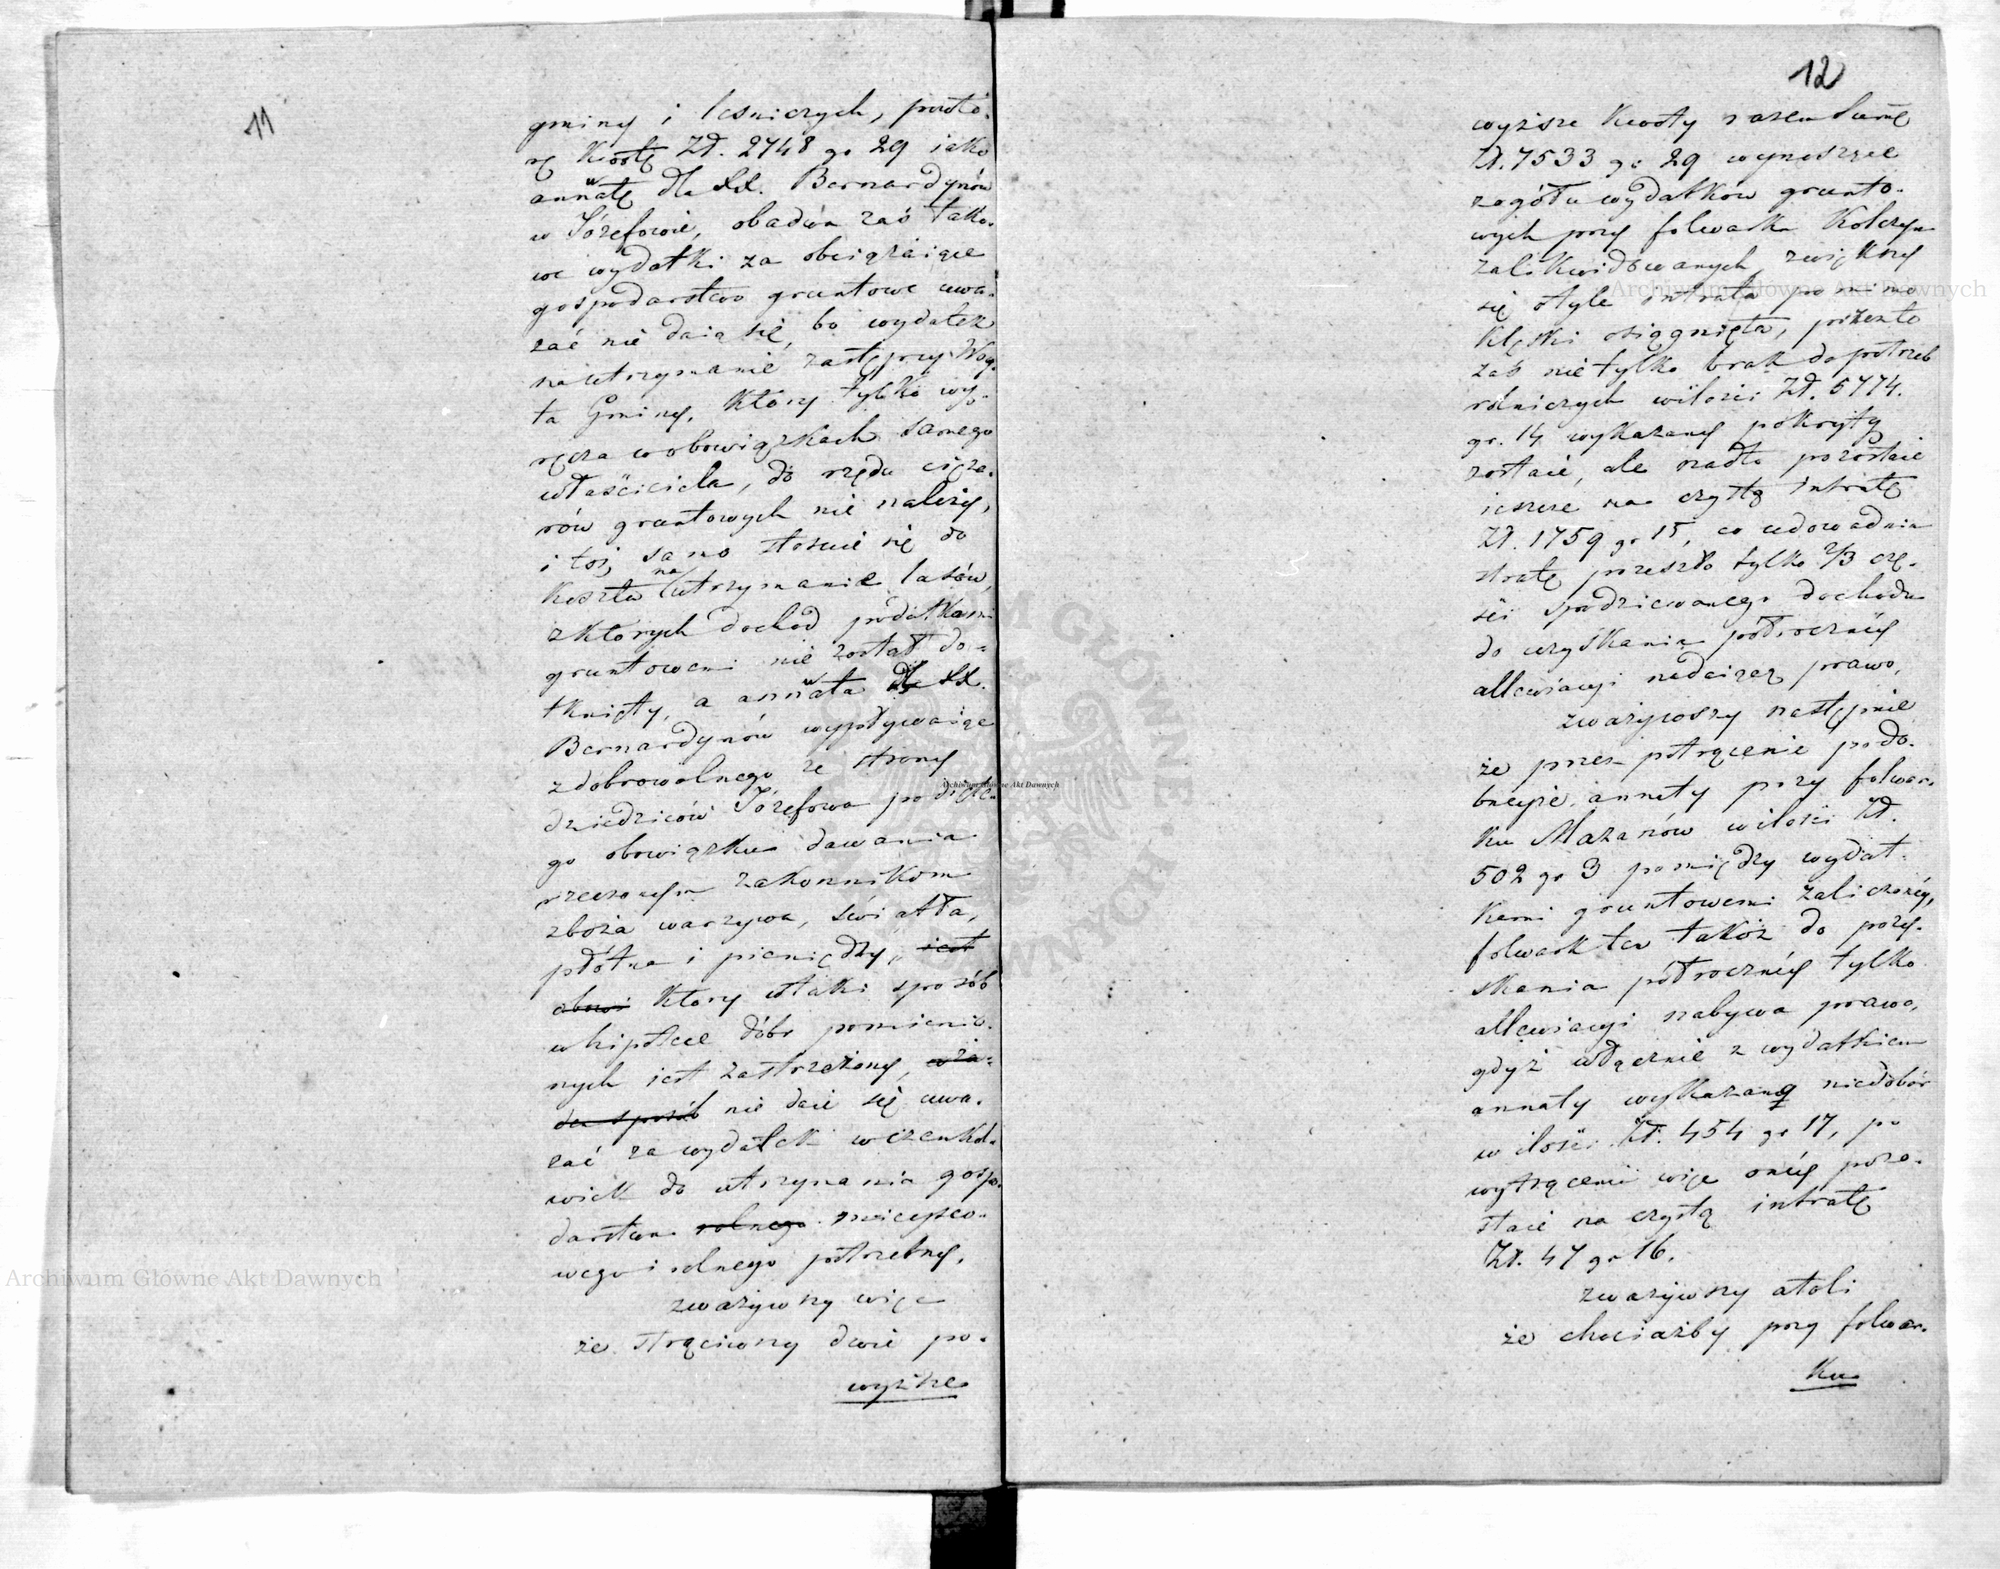 11
gminy i leśniczych, powtó-
rę kwotę Zł. 2748 gr 29 iako
annatę dla XX. Bernardynów
w Józefowie, obadwa zaś tako-
we wydatki za obciążaiące
gospodarstwo gruntowe uwa-
żać nie daią się, bo wydatek
na utrzymanie zastępcy Woy-
ta Gminy, który tylko wy-
ręcza w obowiązkach samego
właściciela, do rzędu cięża-
rów gruntowych nie należy,
i toż samo stosuie się do
kosztu na utrzymanie lasów,
z których dochod podatkami
gruntowemi nie został do-
tknięty, a annata dla XX.
Bernardynów wypływaiąca
z dobrowolnego ze strony
dziedziców Józefowa podięte-
go obowiązku dawania
rzeczonym zakonnikom
zboża warzywa, światła,
płótna i pieniędzy, iest
obowi który w taki sposób
w hipotece dóbr pomienio-
nych iest zastrzeżony,
den sposób nie daie się uwa-
żać za wydatek w czemkol-
wiek do utrzymania gospo-
darstwa rolnego mieysco-
wego i rolnego potrzebny,
zważywszy więc
że strąciwszy dwie po-
wyższe
12
wyższe kwoty razem Summę
Zł. 7533 gr 29 wynoszące
z ogółu wydatków grunto-
wych przy folwarku Kolczyn
zalikwidowanych zwiększy
się o tyle intrata pomimo
klęski osiągnięta, przezto
zaś nietylko brak do potrzeb
rolniczych w ilości Zł. 5774.
gr. 14 wykazany pokryty
zostaie, ale nadto pozostaie
ieszcze na czystą intratę
Zł. 1759 gr 15, co udowadnia
stratę przeszło tylko 2/3 czę-
ści spodziewanego dochodu
do uzyskania półroczney
allewiacyi nadaiącą prawo,
zważywszy następnie
że przez potrącenie podo-
bneyże annaty przy folwar-
ku Mazanów w ilości Zł.
502 gr 3 pomiędzy wydat-
kami gruntowemi zaliczoney,
folwark ten takoż do pozy-
skania półroczney tylko
allewiacyi nabywa prawo,
gdyż włącznie z wydatkiem
annaty wykazany niedobór
w ilości Zł. 454 gr 17, po
wytrąceniu więc oney pozo-
staie na czystą intratę
Zł. 47 gr 16.
zważywszy atoli
że chociażby przy folwar-
ku
Archiwum Główne Akt Dawnych
Archiwum Główne Akt Dawnych
Archiwum Główne Akt Dawnych